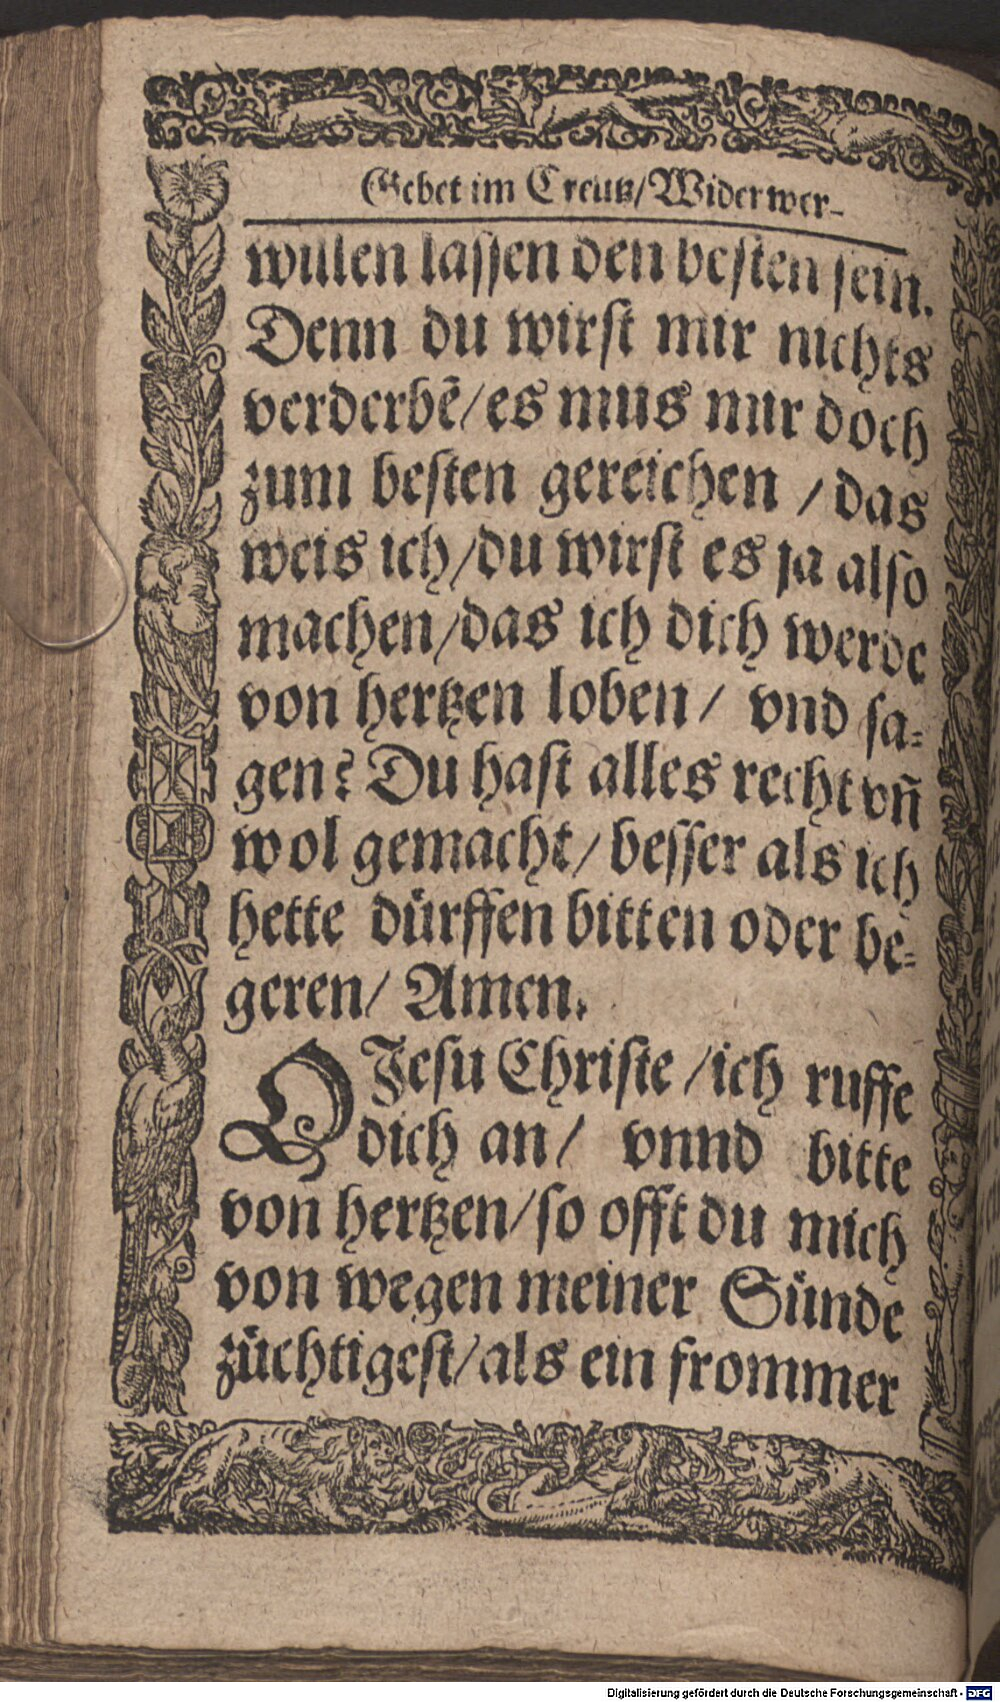 Gebet im Creutz/Widerwer-
willen lassen den besten sein.
Denn du wirst mir nichts
verderbē/es mus mir doch
zum besten gereichen /das
weis ich/du wirst es ja also
machen/das ich dich werde
von hertzen loben/ vnd sa-
gen? Du hast alles recht vñ
wol gemacht/besser als ich
hette dürffen bitten oder be-
geren/ Amen.
O Jesu Christe /ich ruffe
dich an/ vnnd bitte
von hertzen/so offt du mich
von wegen meiner Sünde
züchtigest/als ein frommer
Digitalisierung gefördert durch die Deutsche Forschungsgemeinschaft - DFG